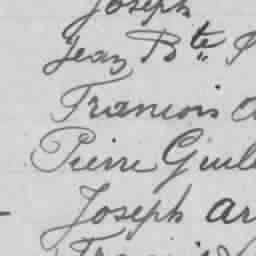 Joseph
Jean Bte
Francois
Pierre Guil
Joseph ar